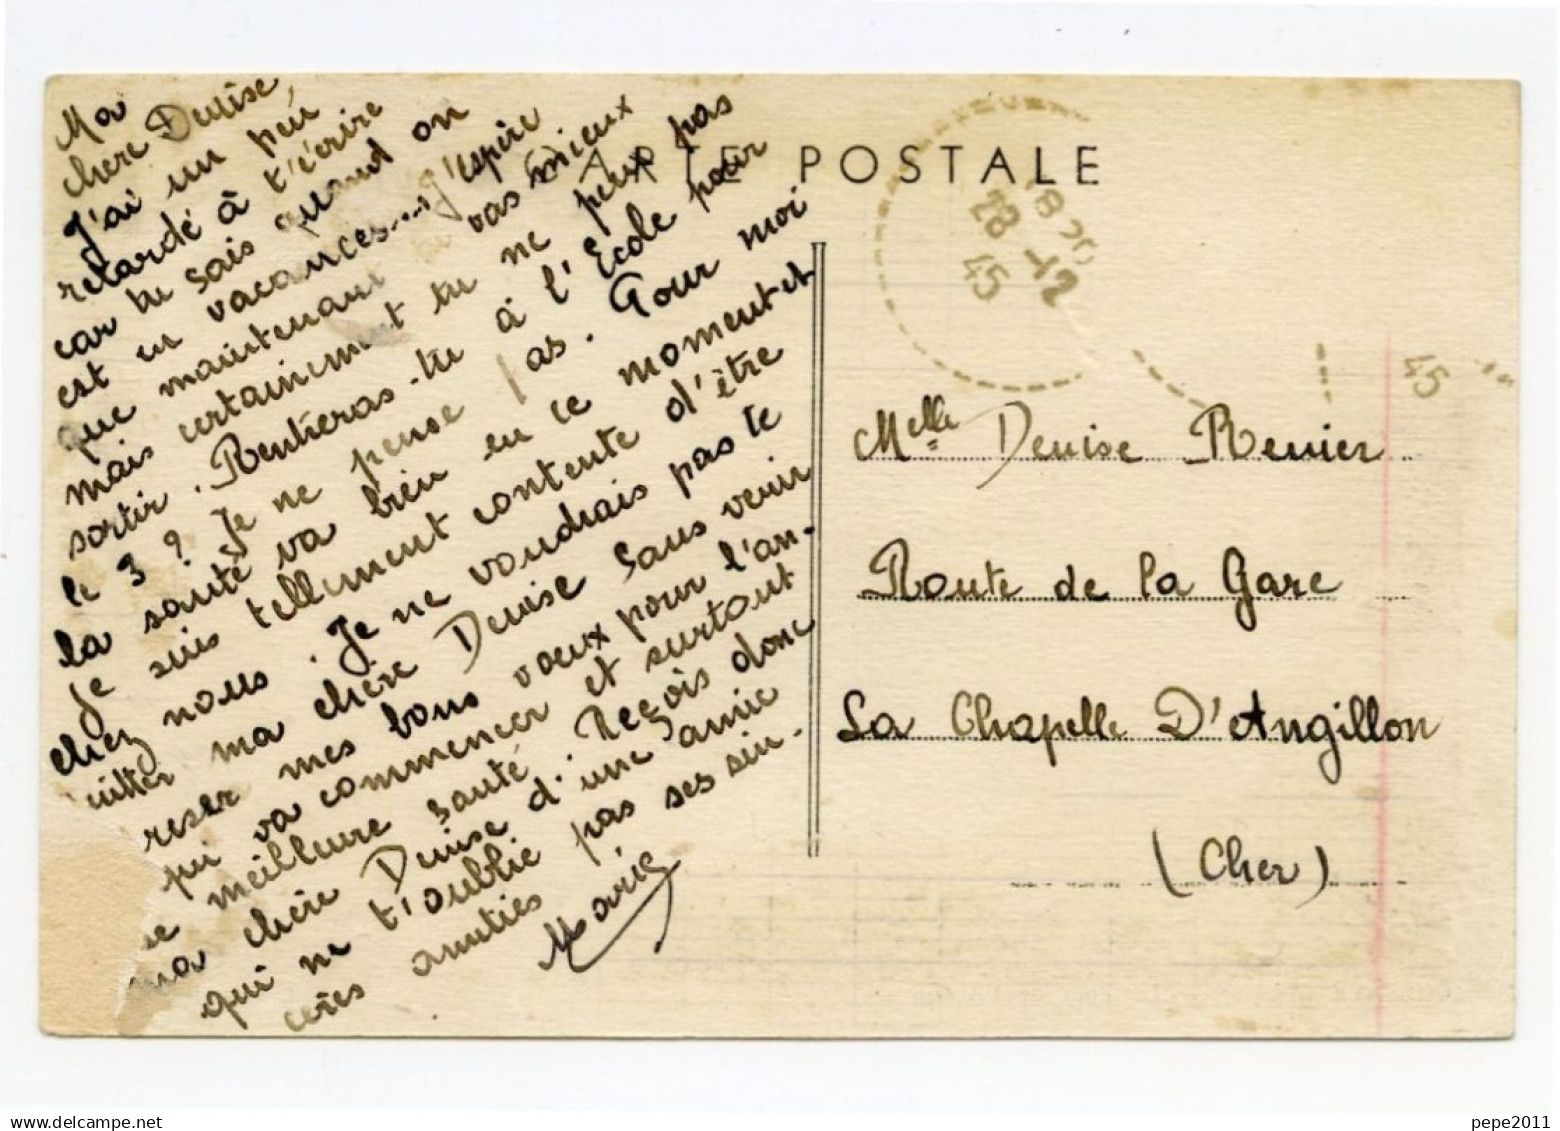 Ma
chere Denise,
J'ai un peu
retardé à t'écrire
car tu sais quand on
est en vacances... j'espère
que maintenant tu vas mieux
mais certainement tu ne peux pas
sortir. Rentreras-tu à l'École pour
le 3 ? Je ne pense pas. Pour moi
la santé va bien en ce moment et
Je suis tellement contente d'être
chez nous. Je ne voudrais pas te
quitter ma chère Denise sans venir
reser mes bons vœux pour l'an-
qui va commencer et surtout
ne meilleure santé. Reçois donc
ma chère Denise d'une amie
qui ne t'oublie pas ses sin-
cères amitiés
Marie
CARTE POSTALE
18 20
28 -12
45
45
Melle Denise Renier
Route de la Gare
La Chapelle D'Angillon
(Cher)
pepe2011